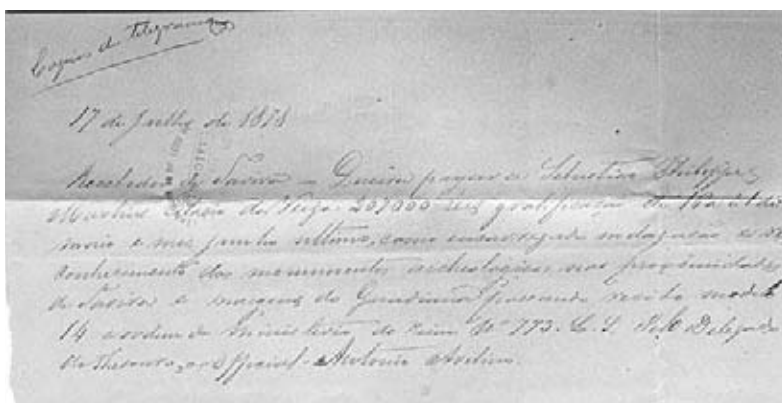 Copia de telegrama
17 de Julho de 1878
Recebedor de Tavira = Queira pagar a Sebastião Philippe
Martins Estacio da Veiga 207000 reis gratificação de
e mez junho ultimo, como encarregado indagação e re
conhecimento dos monumentos archeologicos nas proximidades
de Tavira e margens do Guadiana passando recibo modelo
14 a ordem do Ministerio do Reino Nº 773. L. 5. Pelo Delegado
do Thesouro, o official - Antonio